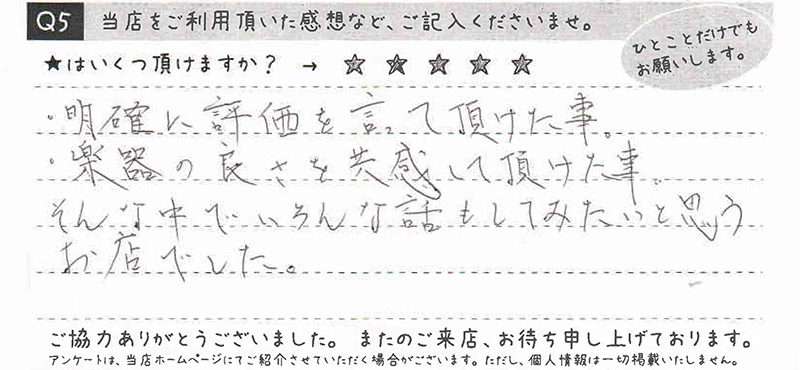 Q5 当店をご利用頂いた感想など、ご記入くださいませ。
ひとことだけでも
お願いします。
★はいくつ頂けますか？ → ☆ ☆ ☆ ☆ ☆
・明確に評価を言って頂けた事。
・楽器の良さを共感して頂けた事。
そんな中でいろんな話もしてみたいと思う
お店でした。
ご協力ありがとうございました。 またのご来店、お待ち申し上げております。
アンケートは、当店ホームページにてご紹介させていただく場合がございます。ただし、個人情報は一切掲載いたしません。